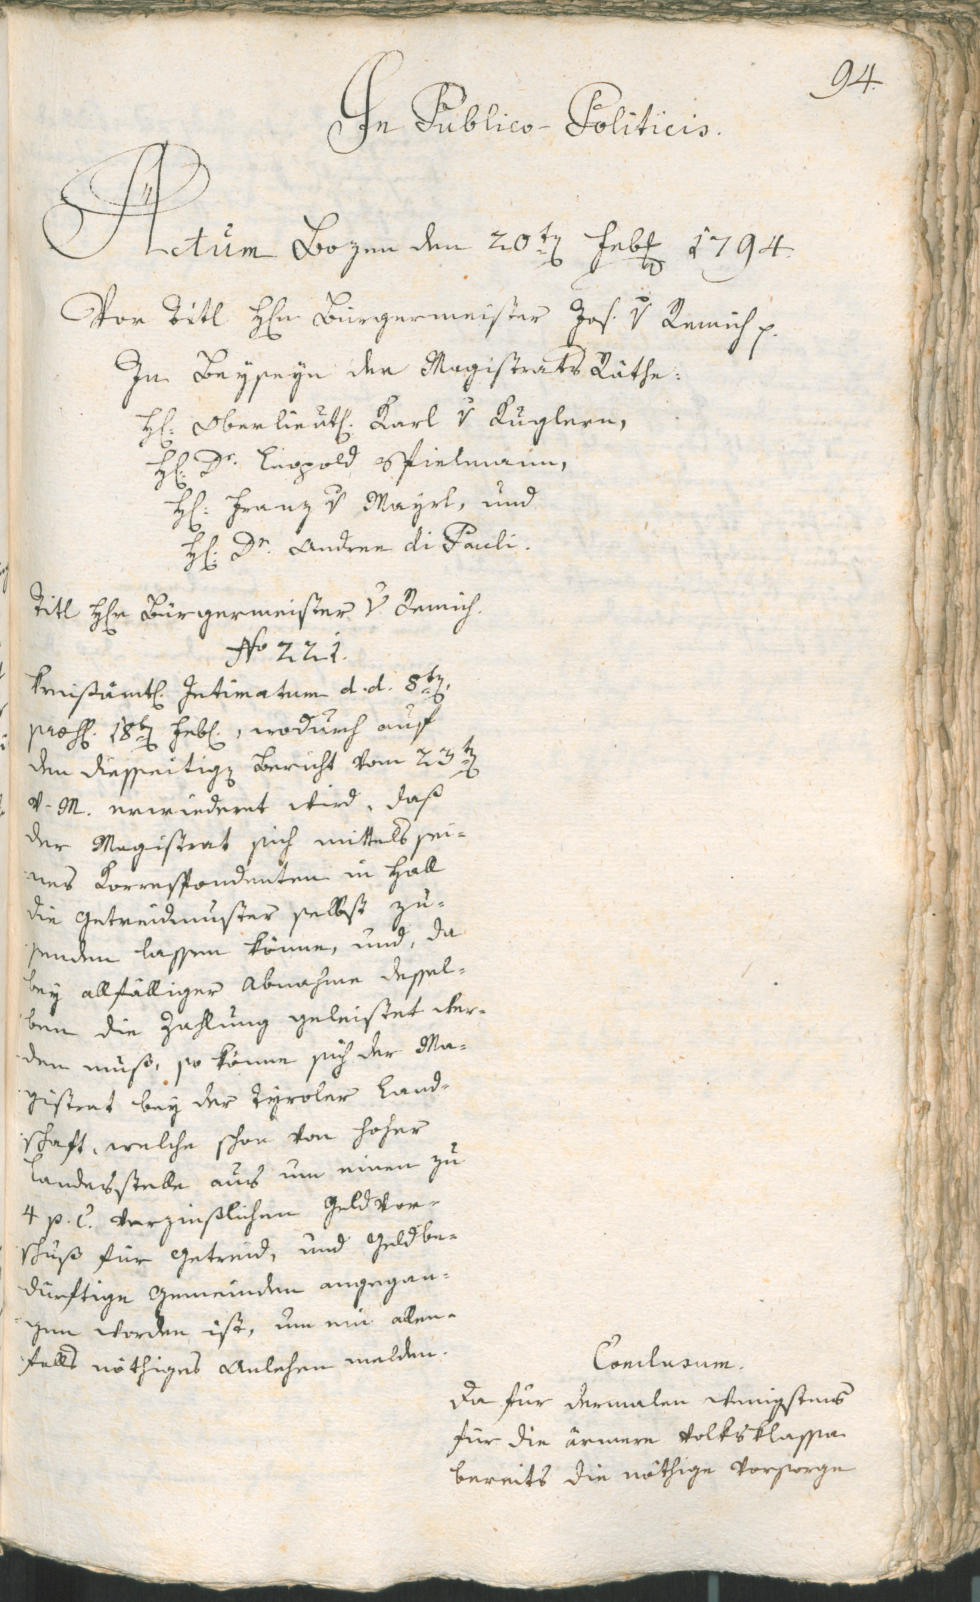 94.
In Publico-Politicis.
Actum Bozen den 20ten Febr 1794.
Vor Titl Hn Bürgermeister Jos. v Remich p.
In Beyseyn der Magistrats Räthe:
H: Oberlieut. Karl v Kuglern,
H: Dr. Leopold Spielmann,
H: Franz v Mayrl, und
H: Dr. Andree di Pauli.
Titl Hn Bürgermeister v Remich.
No 221.
Kreisämtl. Intimatum d. d. 8ten,
præs. 18ten Feb., wodurch auf
den diesseitigen Bericht vom 23ten
v. M. erwiedert wird, daß
der Magistrat sich mittels sei=
nes Korrespondenten in Hall
die Getreidmuster selbst zu=
senden lassen könne, und, da
bey allfälliger Abnahme dessel=
ben die Zahlung geleistet wer=
den muß, so könne sich der Ma=
gistrat bey der Tyroler Land=
schaft, welche schon von hoher
Landesstelle aus um einen zu
4 p. C. verzinßlichen Geldvor=
schuß für Getreid, und Geldbe=
dürftige Gemeinden angegan=
gen worden ist, um ein allen=
falls nöthiges Anlehen melden.
Conclusum.
Da für dermalen wenigstens
für die ärmere Volksklasse
bereits die nöthige Vorsorge